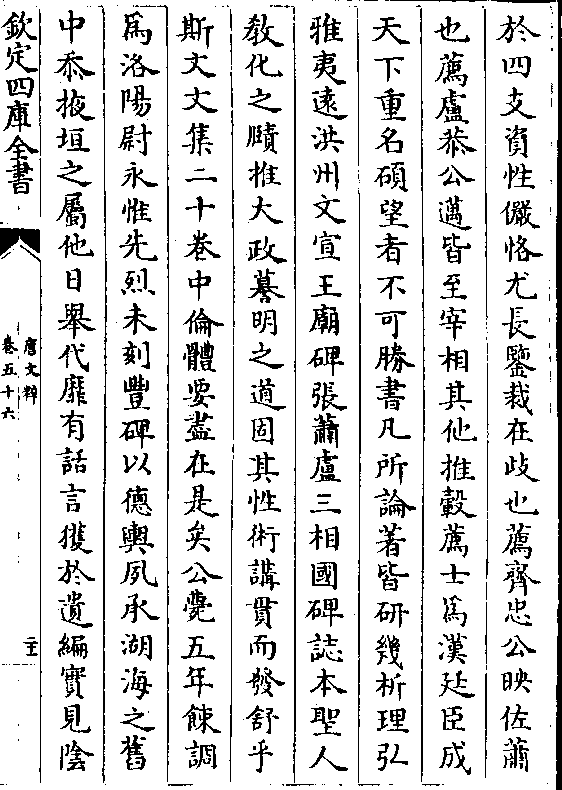 於四支資性儼恪尤長鑒裁在歧也薦齊忠公映佐蕭
也薦盧恭公邁皆至宰相其他推轂薦士爲漢廷臣成
天下重名碩望者不可勝書凡所論著皆研幾析理弘
雅夷逺洪州文宣王廟碑張蕭盧三相國碑誌本聖人
敎化之賾推大政謩明之道固其性術講貫而發舒乎
斯文文集二十卷中倫體要盡在是矣公薨五年餗調
爲洛陽尉永惟先烈未刻豐碑以德輿夙承湖海之舊
中忝掖垣之屬他日舉代靡有話言獲於遺編實見陰
欽定四庫全書
唐文粹
卷五十六